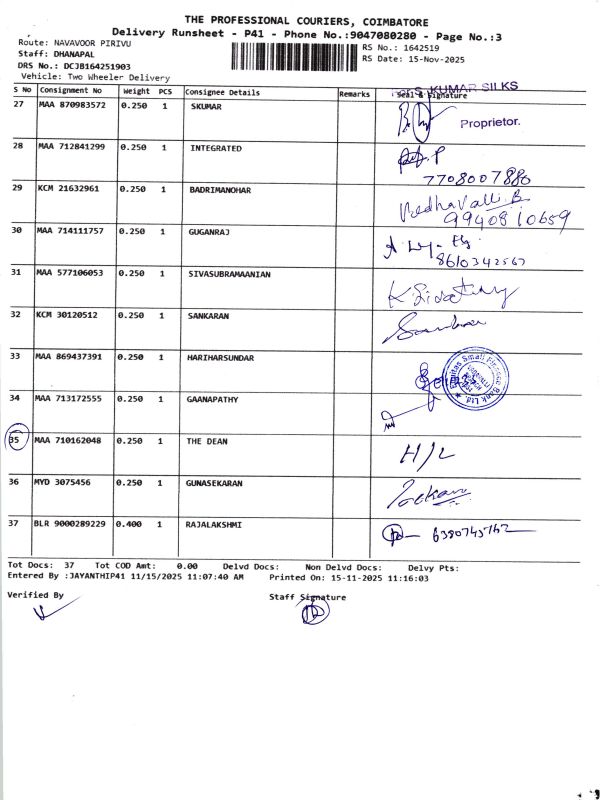 THE PROFESSIONAL COURIERS, COIMBATORE
Delivery Runsheet - P41 - Phone No.:9047080280 - Page No.:3
Route: NAVAVOOR PIRIVU
RS No.: 1642519
Staff: DHANAPAL
RS Date: 15-Nov-2025
DRS No.: DCJB164251903
Vehicle: Two Wheeler Delivery
S No Consignment No Weight PCS Consignee Details Remarks Seal & Signature
KUMAR SILKS
27 MAA 870983572 0.250 1 SKUMAR
Proprietor.
28 MAA 712841299 0.250 1 INTEGRATED
7708007886
29 KCM 21632961 0.250 1 BADRIMANOHAR
MedhaValli.B
9940810659
30 MAA 714111757 0.250 1 GUGANRAJ
8610342567
31 MAA 577106053 0.250 1 SIVASUBRAMAANIAN
32 KCM 30120512 0.250 1 SANKARAN
33 MAA 869437391 0.250 1 HARIHARSUNDAR
Small Finance Bank Ltd.
34 MAA 713172555 0.250 1 GAANAPATHY
35 MAA 710162048 0.250 1 THE DEAN
H/L
36 MYD 3075456 0.250 1 GUNASEKARAN
37 BLR 9000289229 0.400 1 RAJALAKSHMI
6380745762
Tot Docs: 37 Tot COD Amt: 0.00 Delvd Docs: Non Delvd Docs: Delvy Pts:
Entered By :JAYANTHIP41 11/15/2025 11:07:40 AM Printed On: 15-11-2025 11:16:03
Verified By Staff Signature